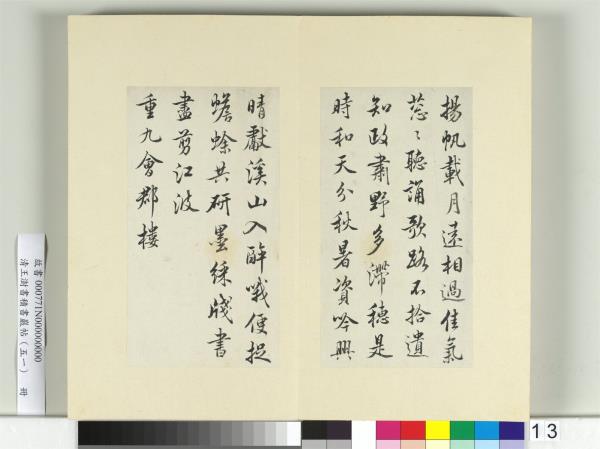 揚帆載月遠相過佳氣
蔥〻聽誦歌路不拾遺
知政肅野多滯穗是
時和天分秋暑資吟興
晴獻溪山入醉哦便捉
蟾蜍共研墨綵牋書
盡剪江波
重九會郡樓
故書000771N000000000
清王澍書積書巖帖（五一） 冊
13